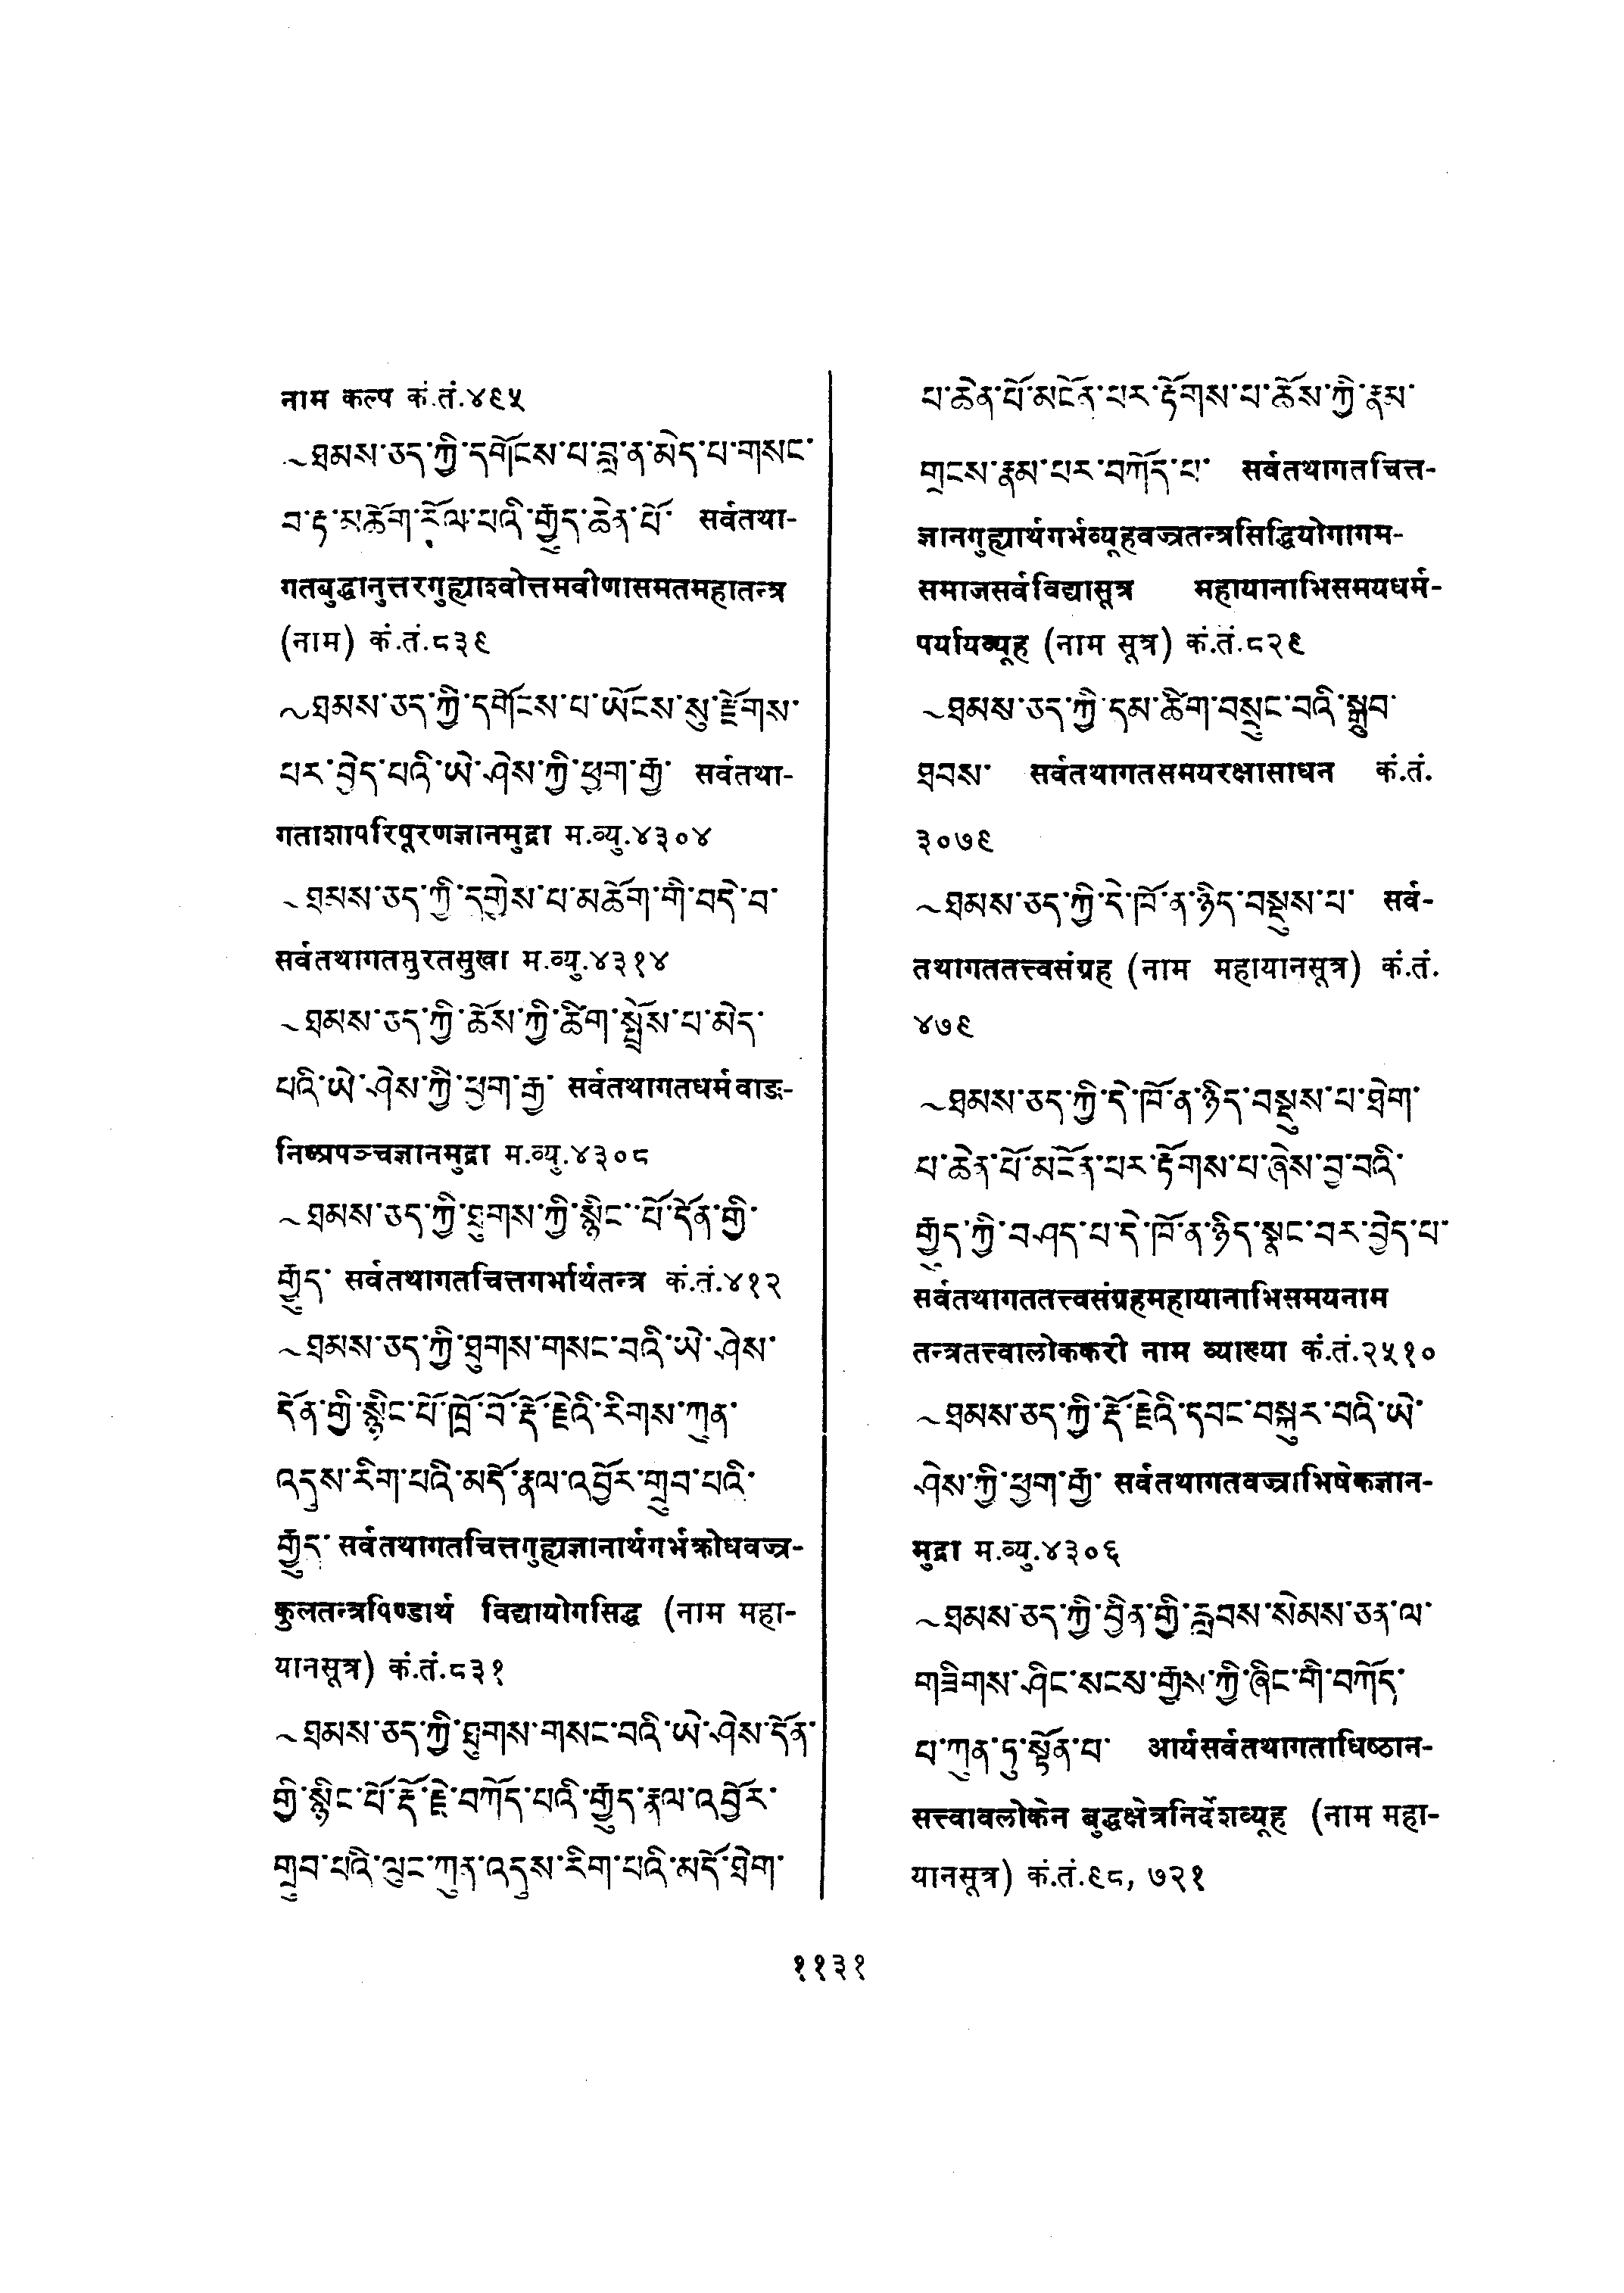 नाम कल्प कं.तं.४९५
~ཐམས་ཅད་ཀྱི་དགོངས་པ་བླ་ན་མེད་པ་གསང་
བ་རྟ་མཆོག་རོལ་པའི་རྒྱུད་ཆེན་པོ་ सर्वतथा-
गतबुद्धानुत्तरगुह्याश्वोत्तमवीणासमतमहातन्त्र
(नाम) कं.तं.८३९
~ཐམས་ཅད་ཀྱི་དགོངས་པ་ཡོངས་སུ་རྫོགས་
པར་བྱེད་པའི་ཡེ་ཤེས་ཀྱི་ཕྱག་རྒྱ་ सर्वतथा-
गताशापरिपूरणज्ञानमुद्रा म.व्यु.४३०४
~ཐམས་ཅད་ཀྱི་དགྱེས་པ་མཆོག་གི་བདེ་བ་
सर्वतथागतसुरतसुखा म.व्यु.४३१४
~ཐམས་ཅད་ཀྱི་ཆོས་ཀྱི་ཚིག་སྤྲོས་པ་མེད་
པའི་ཡེ་ཤེས་ཀྱི་ཕྱག་རྒྱ་ सर्वतथागतधर्मवाङ-
निष्प्रपञ्चज्ञानमुद्रा म.व्यु.४३०८
~ཐམས་ཅད་ཀྱི་ཐུགས་ཀྱི་སྙིང་པོ་དོན་གྱི་
རྒྱུད་ सर्वतथागतचित्तगर्भार्थतन्त्र कं.तं.४१२
~ཐམས་ཅད་ཀྱི་ཐུགས་གསང་བའི་ཡེ་ཤེས་
དོན་གྱི་སྙིང་པོ་ཁྲོ་བོ་རྡོ་རྗེའི་རིགས་ཀུན་
འདུས་རིག་པའི་མདོ་རྣལ་འབྱོར་གྲུབ་པའི་
རྒྱུད་ सर्वतथागतचित्तगुह्यज्ञानार्थगर्भक्रोधवज्र-
कुलतन्त्रपिण्डार्थ विद्यायोगसिद्ध (नाम महा-
यानसूत्र) कं.तं.८३१
~ཐམས་ཅད་ཀྱི་ཐུགས་གསང་བའི་ཡེ་ཤེས་དོན་
གྱི་སྙིང་པོ་རྡོ་རྗེ་བཀོད་པའི་རྒྱུད་རྣལ་འབྱོར་
གྲུབ་པའི་ལུང་ཀུན་འདུས་རིག་པའི་མདོ་ཐེག་
པ་ཆེན་པོ་མངོན་པར་རྟོགས་པ་ཆོས་ཀྱི་རྣམ་
གྲངས་རྣམ་པར་བཀོད་པ་ सर्वतथागतचित्त-
ज्ञानगुह्यार्थगर्भव्यूहवज्रतन्त्रसिद्धियोगागम-
समाजसर्वविद्यासूत्र महायानाभिसमयधर्म-
पर्यायव्यूह (नाम सूत्र) कं.तं.८२९
~ཐམས་ཅད་ཀྱི་དམ་ཚིག་བསྲུང་བའི་སྒྲུབ་
ཐབས་ सर्वतथागतसमयरक्षासाधन कं.तं.
३०७९
~ཐམས་ཅད་ཀྱི་དེ་ཁོ་ན་ཉིད་བསྡུས་པ་ सर्व-
तथागततत्त्वसंग्रह (नाम महायानसूत्र) कं.तं.
४७९
~ཐམས་ཅད་ཀྱི་དེ་ཁོ་ན་ཉིད་བསྡུས་པ་ཐེག་
པ་ཆེན་པོ་མངོན་པར་རྟོགས་པ་ཞེས་བྱ་བའི་
རྒྱུད་ཀྱི་བཤད་པ་དེ་ཁོ་ན་ཉིད་སྣང་བར་བྱེད་པ་
सर्वतथागततत्त्वसंग्रहमहायानाभिसमयनाम
तन्त्रतत्त्वालोककरी नाम व्याख्या कं.तं.२५१०
~ཐམས་ཅད་ཀྱི་རྡོ་རྗེའི་དབང་བསྐུར་བའི་ཡེ་
ཤེས་ཀྱི་ཕྱག་རྒྱ་ सर्वतथागतवज्राभिषेकज्ञान-
मुद्रा म.व्यु.४३०६
~ཐམས་ཅད་ཀྱི་བྱིན་གྱི་རླབས་སེམས་ཅན་ལ་
གཟིགས་ཤིང་སངས་རྒྱས་ཀྱི་ཞིང་གི་བཀོད་
པ་ཀུན་དུ་སྟོན་པ་ आर्यसर्वतथागताधिष्ठान-
सत्त्वावलोकेन बुद्धक्षेत्रनिर्देशव्यूह (नाम महा-
यानसूत्र) कं.तं.९८, ७२१
११३१